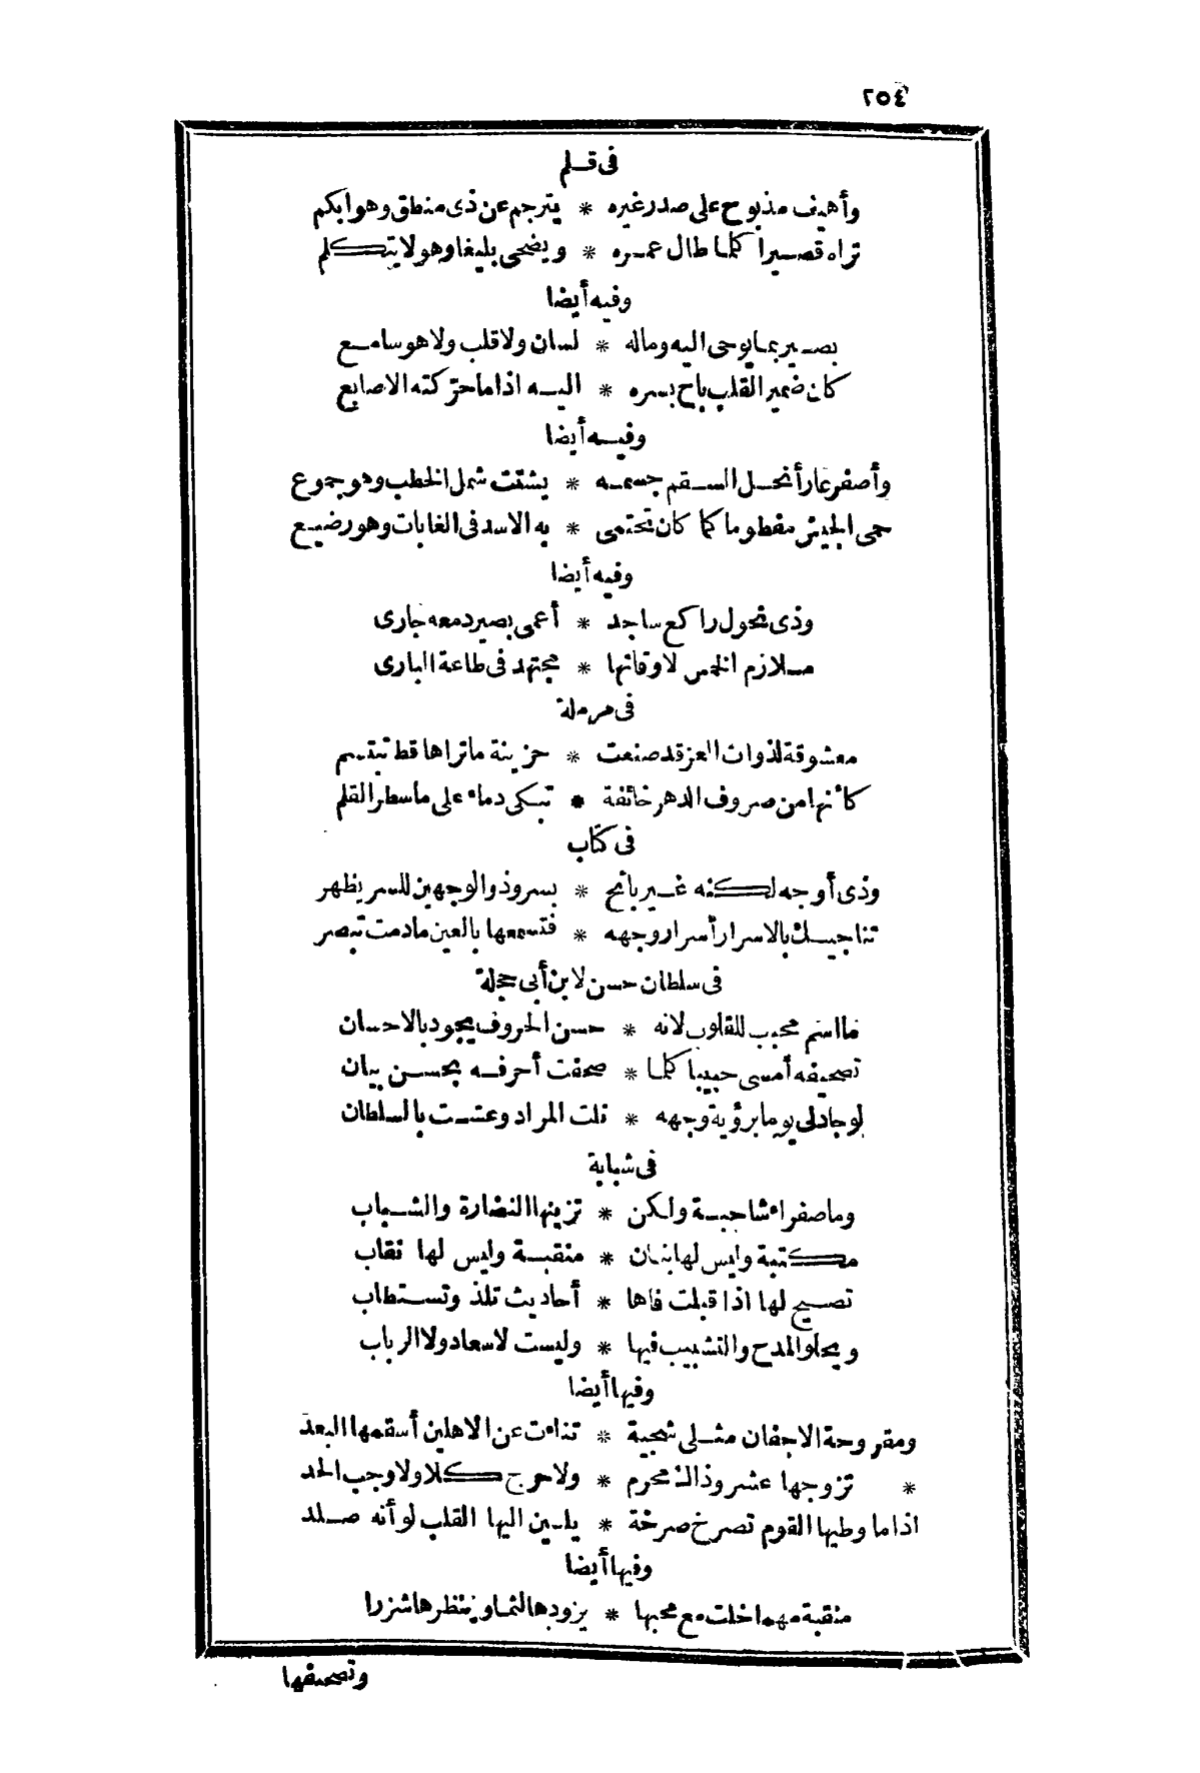 ٢٥٤
فى قلم
وأهيف مذبوح على صدر غيره * يترجم عن ذى منطق وهو ابكم
تراه قصيرا كلما طال عمره * ويضحى بليغا وهو لا يتكلم
وفيه أيضا
بصير بما يوحى اليه وماله * لسان ولا قلب ولا هو سامع
كان ضمير القلب باح بسره * اليه اذا ما حركته الاصابع
وفيه أيضا
وأصفر عار أنحل السقم جسمه * يشتت شمل الخطب وهو جموع
حمى الجيش مفطوما كما كان تحتمى * به الاسد فى الغابات وهو رضيع
وفيه أيضا
وذى نحول راكع ساجد * أعمى بصير دمعه جارى
ملازم الخمس لاوقاتها * مجتهد فى طاعة البارى
فى مرملة
معشوقة لذوات العز قد صنعت * حزينة ما تراها قط تبتسم
كأنها من صروف الدهر خائفة * تبكى دماء على ما سطر القلم
فى كتاب
وذى أوجه لكنه غير بائح * بسر وذو الوجهين للسر يظهر
تناجيك بالاسرار أسرار وجهه * فتسمعها بالعين مادمت تبصر
فى سلطان حسن لابن أبى حجلة
ما اسم محبب للقلوب لانه * حسن الحروف يجود بالاحسان
تصحيفه أمسى حبيبا كلما * صحفت أحرفه بحسن بيان
لو جاد لى يوما برؤية وجهه * نلت المراد وعشت بالسلطان
فى شبابة
وما صفراء شاحبة ولكن * تزينها النضارة والشباب
مكتبة وليس لها بنان * منقبة وليس لها نقاب
تصيح لها اذا قبلت فاها * أحاديث تلذ وتستطاب
ويحلو المدح والتشبيب فيها * وليست لاسعاد ولا الرباب
وفيها أيضا
ومقروحة الاجفان مثلى شجية * تناءت عن الاهلين أسقمها البعد
* تزوجها عشر وذاك محرم * ولا حرج كلا ولا وجب الحد
اذا ما وطيها القوم تصرخ صرخة * يلين اليها القلب لو أنه صلد
وفيها أيضا
منقبة مهما خلت مع محبها * يزودها لثما وينظرها شزرا
وتصحيفها